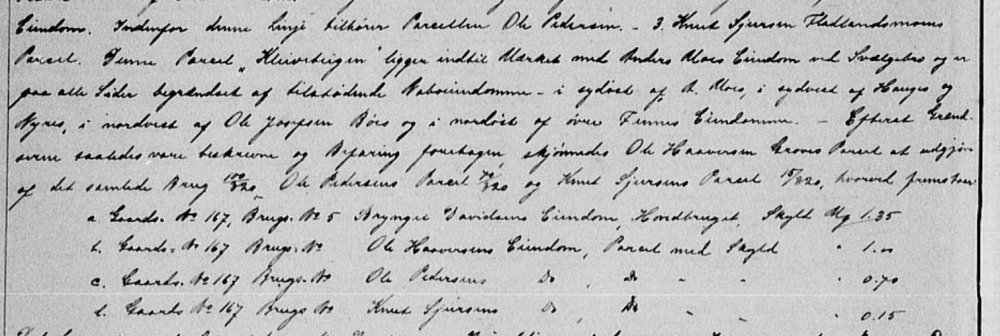 Eiendom. Indenfor denne Linje tilhører Parcellen Ole Pedersen. – 3. Knut Sjursen Fladlandsmoens
Parcel. Denne Parcel "Kleivsteigen" ligger indtil Mærket med Anders Moes Eiendom ved Svælgebro og er
paa alle Sider begrændset af tilstødende Naboeiendomme – i sydøst af A. Moes, i sydvest af Hauges og
Nyres, i nordvest af Ole Josefsen Bøes og i nordøst af øvre Finnes Eiendomme. – Efterat Grænd-
serne saaledes vare beskrevne og Befaring foretagen, skjønnedes Ole Haaversen Groves Parcel at udgjøre
af det samlede Brug 100/320, Ole Pedersens Parcel 70/320 og Knut Sjursens Parcel 15/320, hvorved fremstaar
a. Gaards. No 167, Brugs. No 5 Brynget Davidsens Eiendom, Hovedbruget, Skyld Mg 1.35
b. Gaards. No 167 Brugs. No Ole Haaversens Eiendom, Parcel med Skyld " 1.00
c. Gaards. No 167 Brugs. No Ole Pedersens Do , Do " " 0.70
d. Gaards No 167 Brugs No Knut Sjursens Do , Do " " 0.15